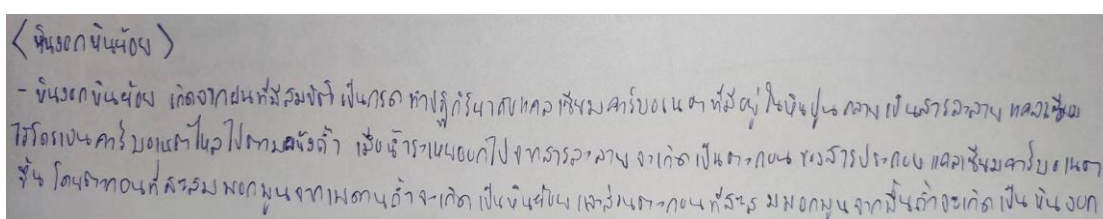 <หินงอกหินย้อย>
- หินงอกหินย้อย เกิดจากฝนที่มีสมบัติเป็นกรด ทำปฏิกิริยากับแคลเซียมคาร์บอเนตที่มีอยู่ในหินปูน กลายเป็นสารละลาย แคลเซียม
ไฮโดรเจนคาร์บอเนตไหลไปตามผนังถ้ำ เมื่อน้ำระเหยออกไปจากสารละลายจะเกิดเป็นตะกอนของสารประกอบแคลเซียมคาร์บอเนต
ขึ้น โดยตะกอนที่สะสมพอกพูนจากเพดานถ้ำจะเกิดเป็นหินย้อย และส่วนตะกอนที่สะสมพอกพูนจากพื้นถ้ำจะเกิดเป็นหินงอก